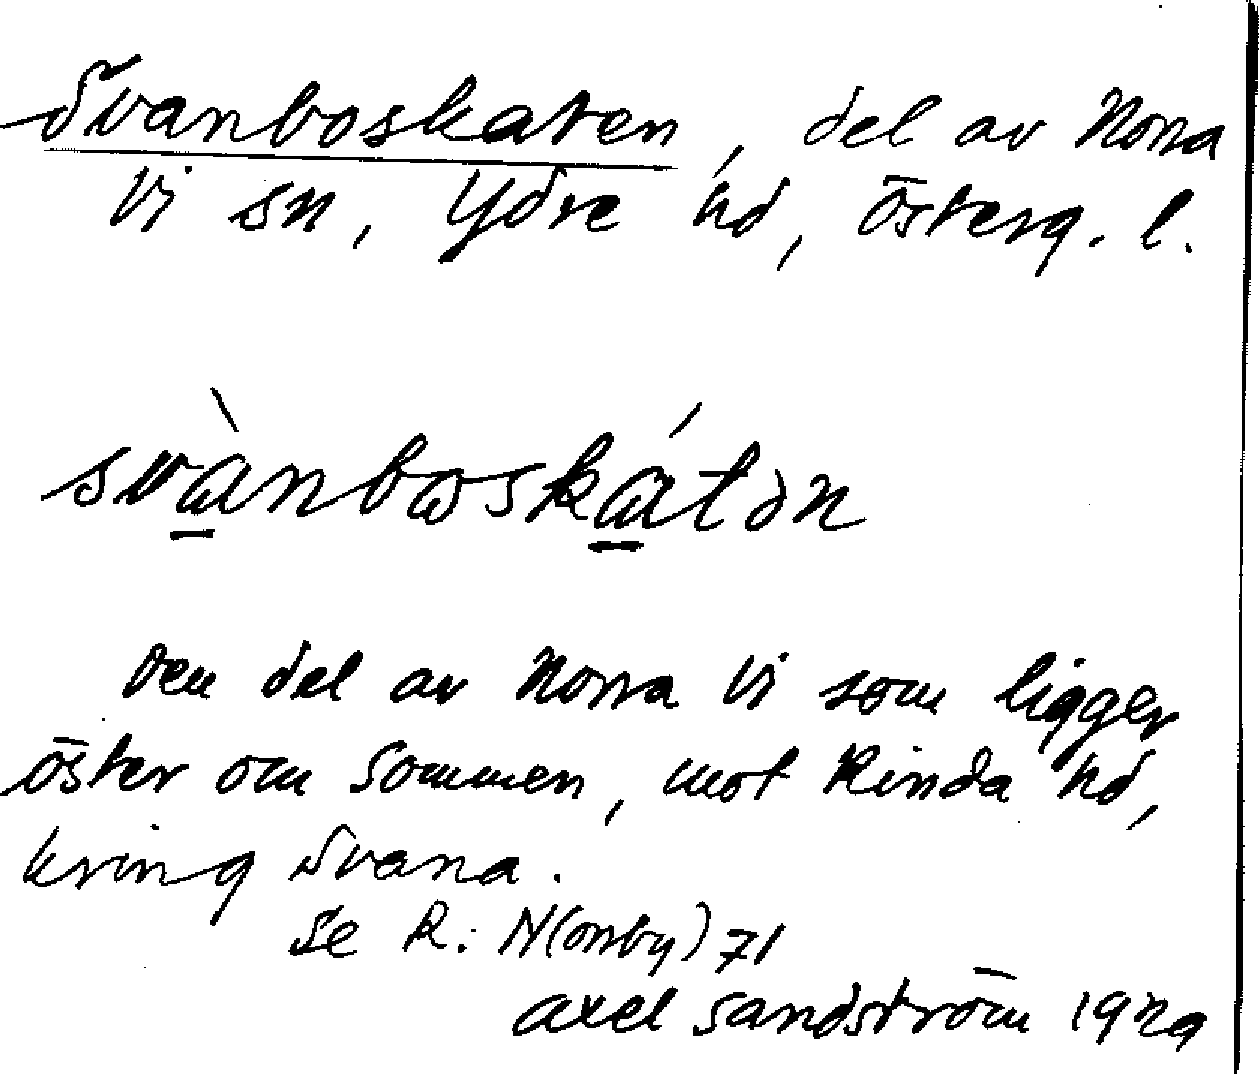 Svanboskaten, del av Norra
Vi sn, Ydre hd, Österg. l.
svànboskátən
Den del av Norra Vi som ligger
öster om Sommen, mot Kinda hd,
kring Svana.
Se R: N(orrby) 71
Axel Sandström 1929